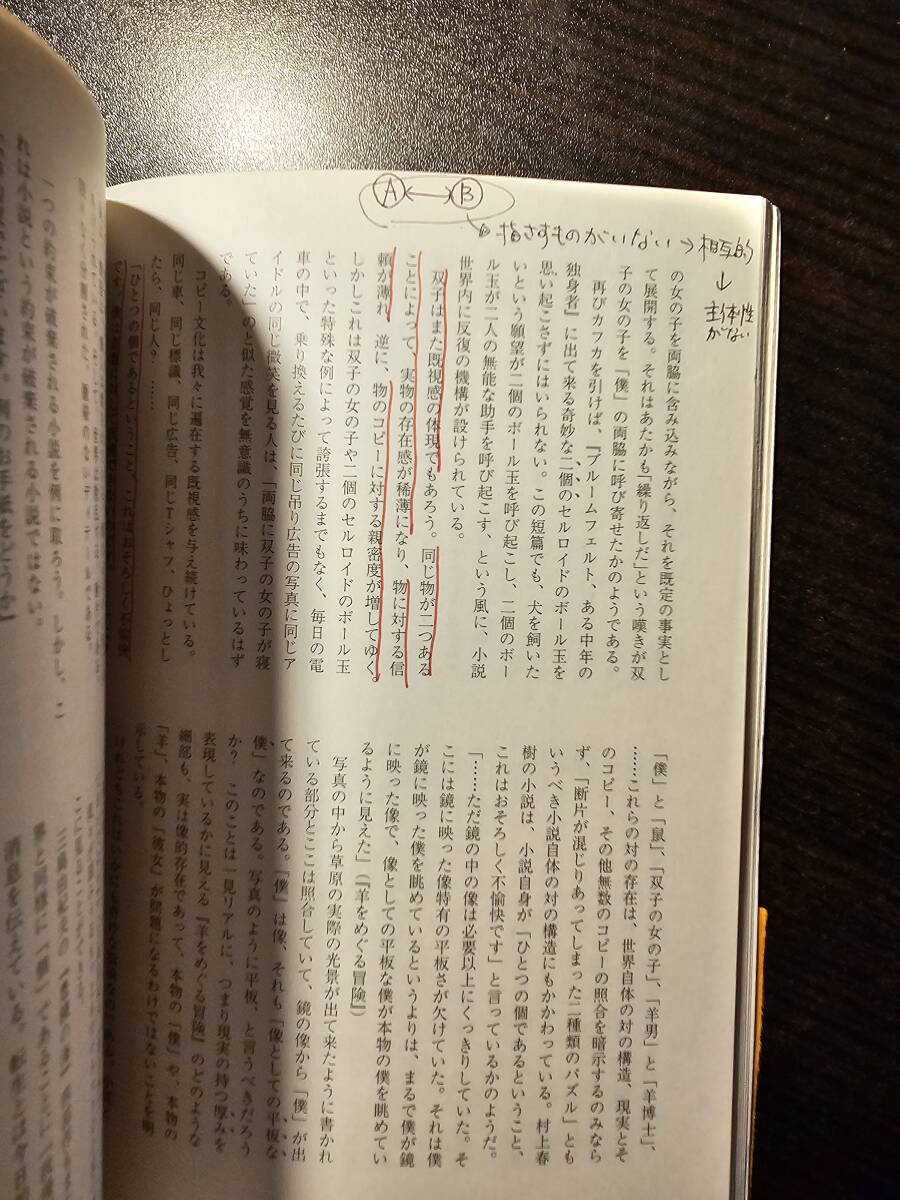 A ←→ B
指さすものがいない→相互的
↓
主体性
がない
の女の子を両脇に含み込みながら、それを既定の事実とし
て展開する。それはあたかも「繰り返しだ」という嘆きが双
子の女の子を「僕」の両脇に呼び寄せたかのようである。
再びカフカを引けば、『ブルームフェルト、ある中年の
独身者』に出て来る奇妙な二個のセルロイドのボール玉を
思い起こさずにはいられない。この短篇でも、犬を飼いた
いという願望が二個のボール玉を呼び起こし、二個のボー
ル玉が二人の無能な助手を呼び起こす、という風に、小説
世界内に反復の機構が設けられている。
双子はまた既視感の体現でもあろう。同じ物が二つある
ことによって、実物の存在感が稀薄になり、物に対する信
頼が薄れ、逆に、物のコピーに対する親密度が増してゆく。
しかしこれは双子の女の子や二個のセルロイドのボール玉
といった特殊な例によって誇張するまでもなく、毎日の電
車の中で、乗り換えるたびに同じ吊り広告の写真に同じア
イドルの同じ微笑を見る人は、「両脇に双子の女の子が寝
ていた」のと似た感覚を無意識のうちに味わっているはず
である。
コピー文化は我々に遍在する既視感を与え続けている。
同じ車、同じ標識、同じ広告、同じTシャツ、ひょっとし
たら、同じ人?……
「ひとつの個であるということ、これはおそろしく不愉快
です。
「僕」と「鼠」、「双子の女の子」、「羊男」と「羊博士」、
……これらの対の存在は、世界自体の対の構造、現実とそ
のコピー、その他無数のコピーの照合を暗示するのみなら
ず、「断片が混じりあってしまった二種類のパズル」とも
いうべき小説自体の対の構造にもかかわっている。村上春
樹の小説は、小説自身が「ひとつの個であるということ、
これはおそろしく不愉快です」と言っているかのようだ。
「……ただ鏡の中の像は必要以上にくっきりしていた。そ
こには鏡に映った像特有の平板さが欠けていた。それは僕
が鏡に映った僕を眺めているというよりは、まるで僕が鏡
に映った像で、像としての平板な僕が本物の僕を眺めてい
るように見えた」(『羊をめぐる冒険』)
写真の中から草原の実際の光景が出て来たように書かれ
ている部分とここは照合していて、鏡の像から「僕」が出
て来るのである。「僕」は像、それも「像としての平板な
僕」なのである。写真のように平板、と言うべきだろう
か?　このことは一見リアルに、つまり現実の持つ厚みを
表現しているかに見える『羊をめぐる冒険』のどのような
細部も、実は像的存在であって、本物の「僕」や、本物の
「羊」、本物の「彼女」が問題になるわけではないことを明
示している。
「一つの約束が破棄される小説を例に取ろう。しかし、こ
れは小説という約束が破棄される小説ではない。